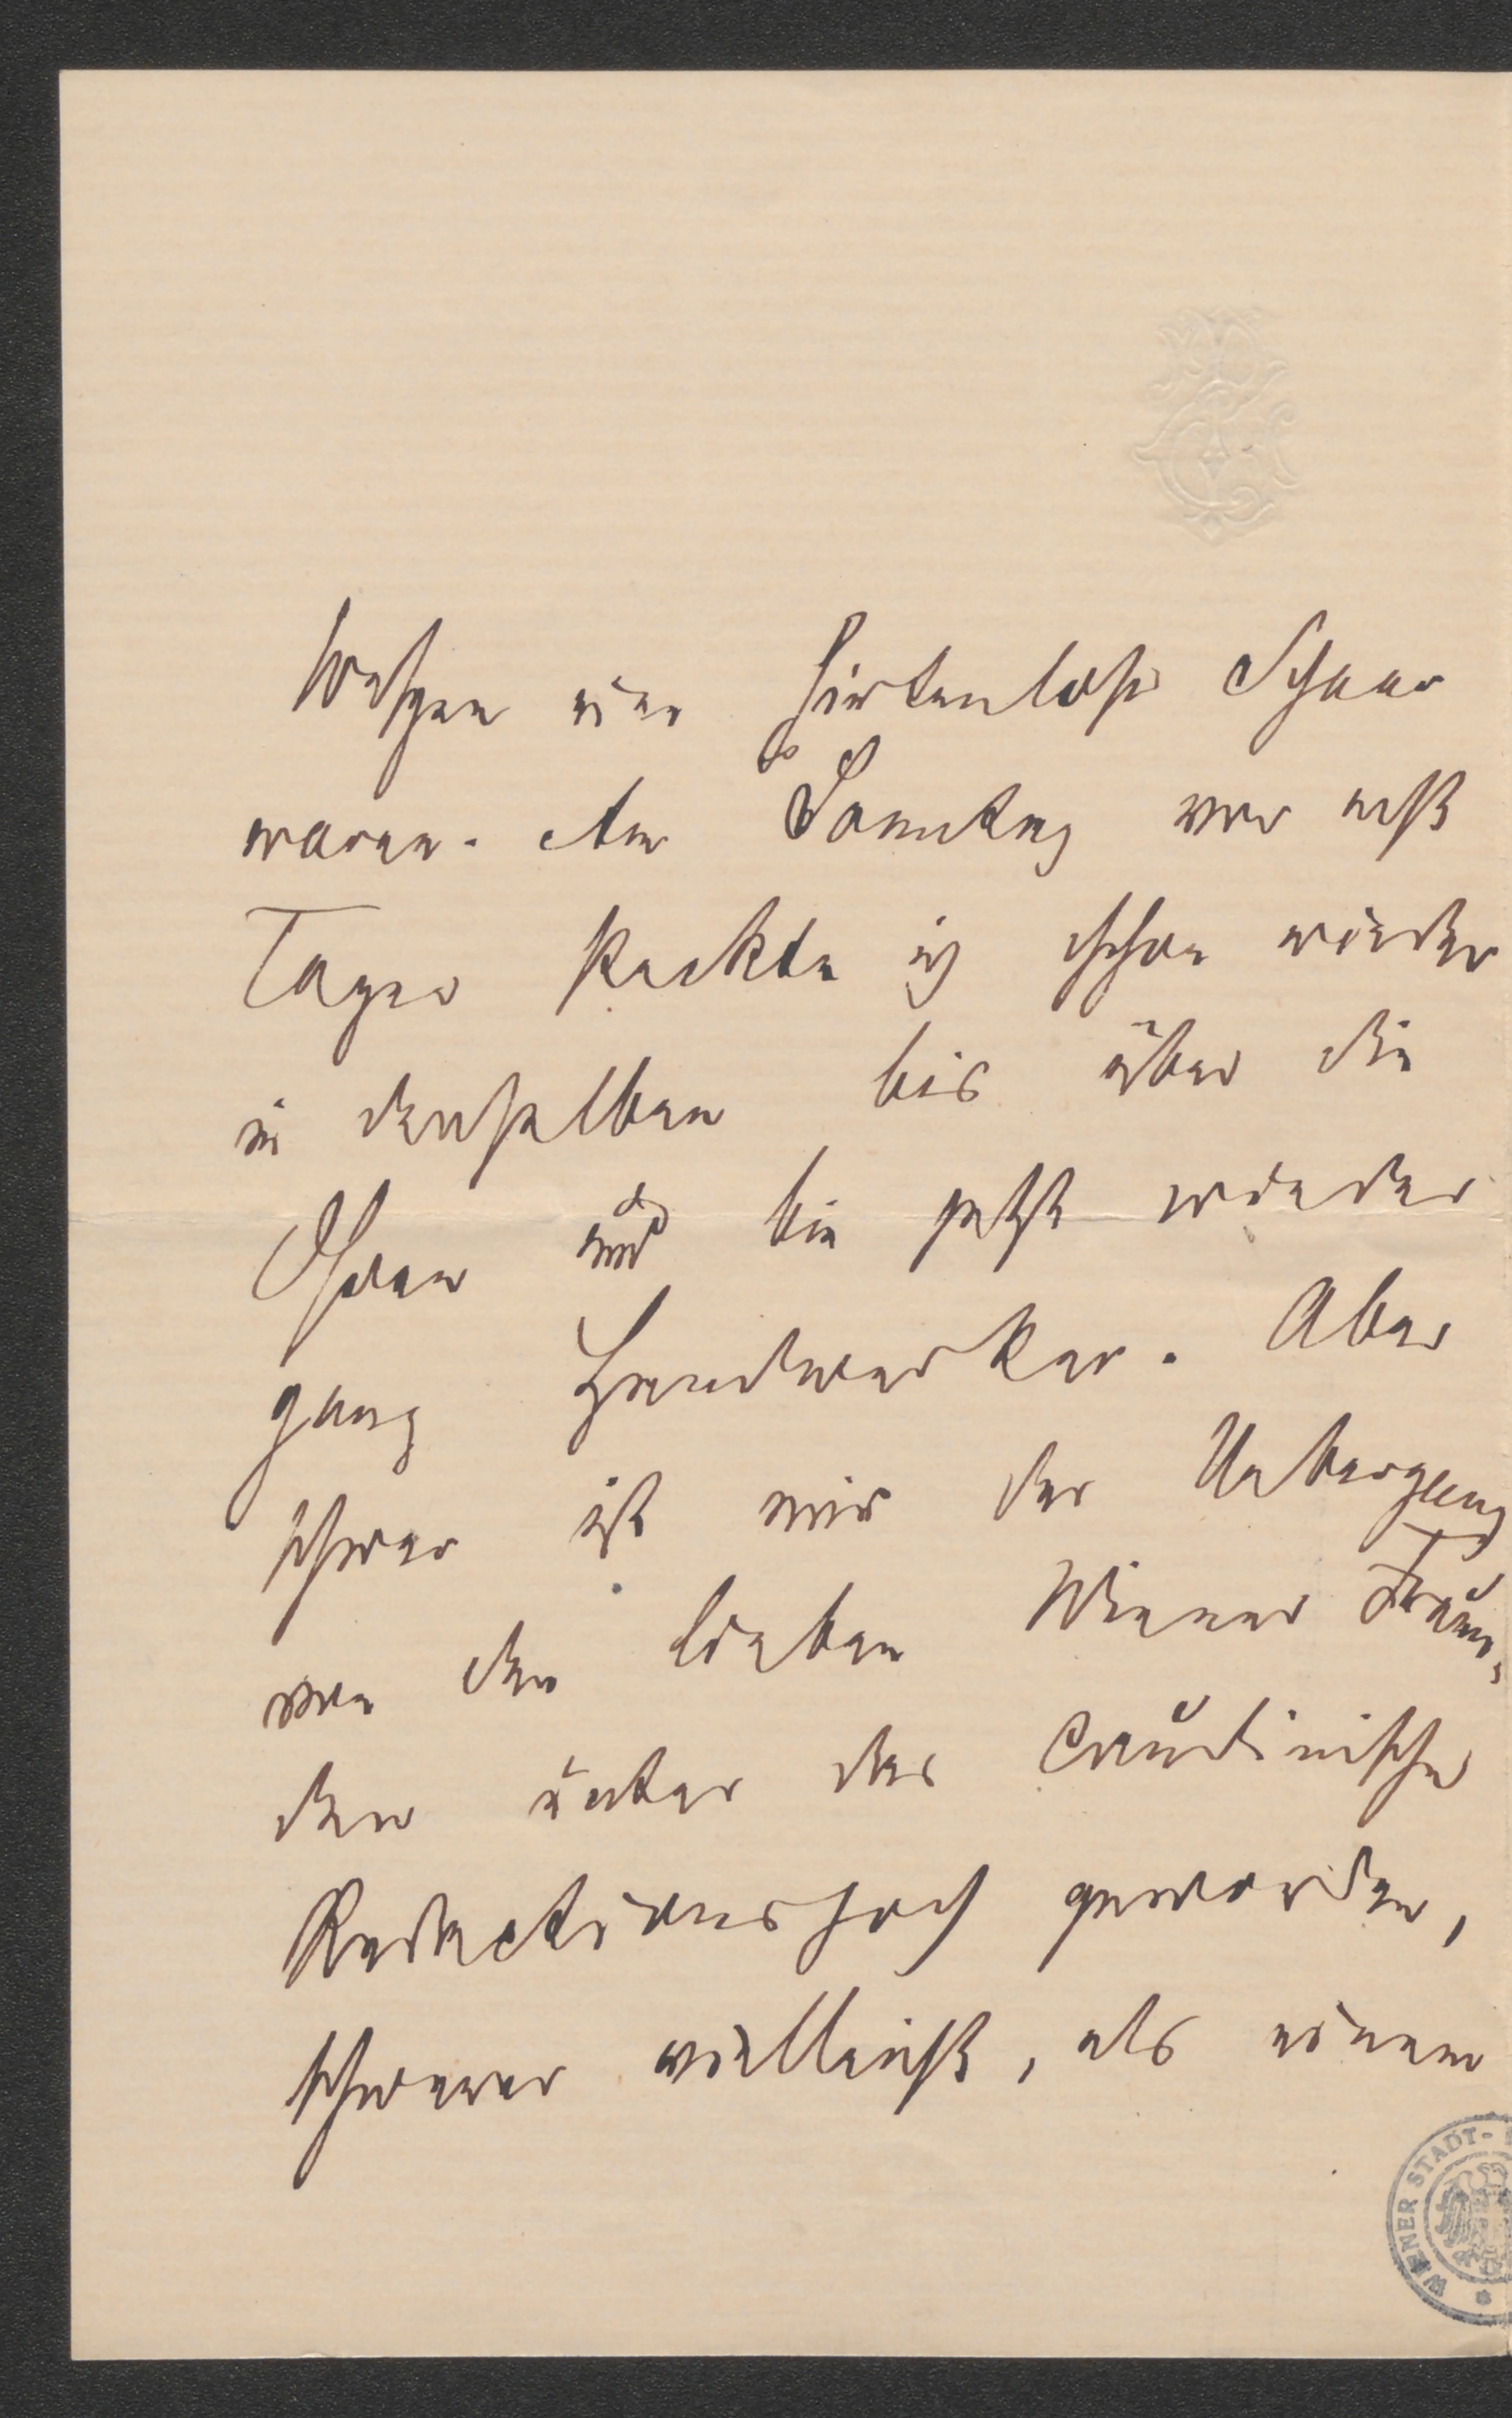 Wochen eine hirtenlose Schaar
waren. Am Sonntag vor acht
Tagen steckte ich schon wieder
in denselben bis über die
Ohren und bin jetzt wieder
ganz Handwerker. Aber
schwer ist mir der Uebergang
von den lieben Wiener Freun-
den unter das caudinische
Redactionsjoch geworden,
schwerer vielleicht, als einem
WIENER STADT-